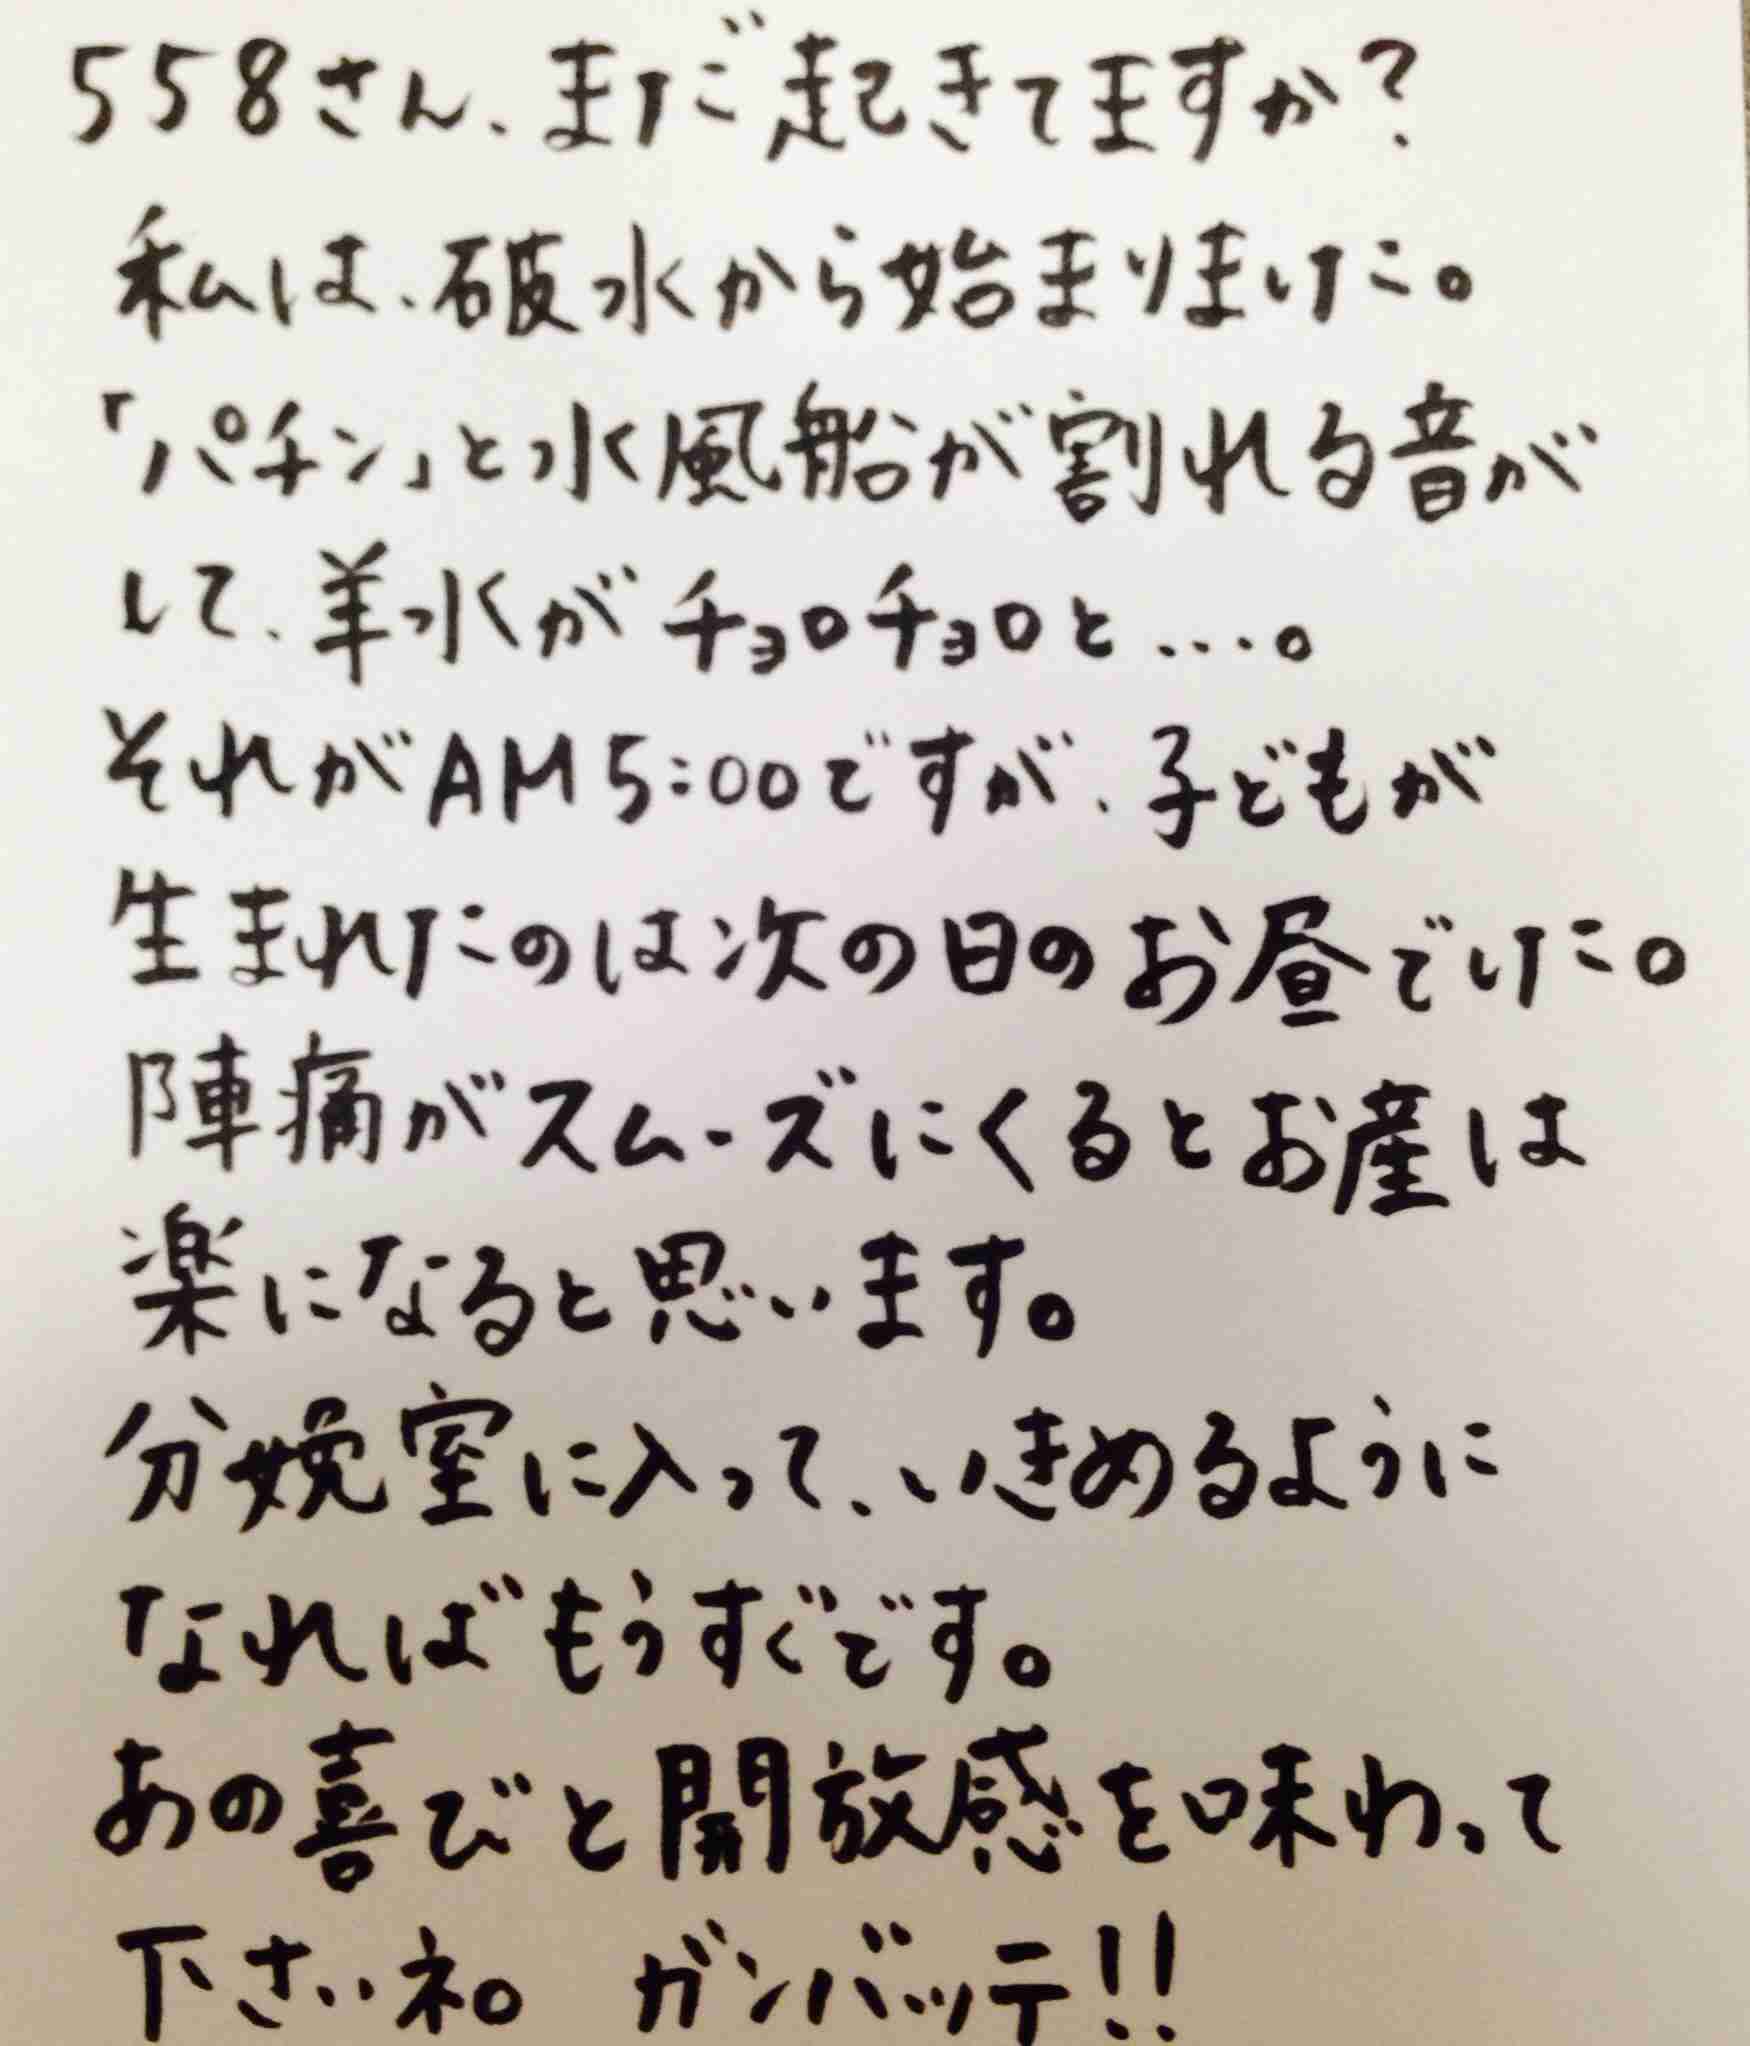 558さん、まだ起きてますか?
私は、破水から始まりました。
「パチン」と水風船が割れる音が
して、羊水がチョロチョロと…。
それがAM5:00ですが、子どもが
生まれたのは次の日のお昼でした。
陣痛がスムーズにくるとお産は
楽になると思います。
分娩室に入って、いきめるように
なればもうすぐです。
あの喜びと開放感を味わって
下さいネ。 ガンバッテ!!